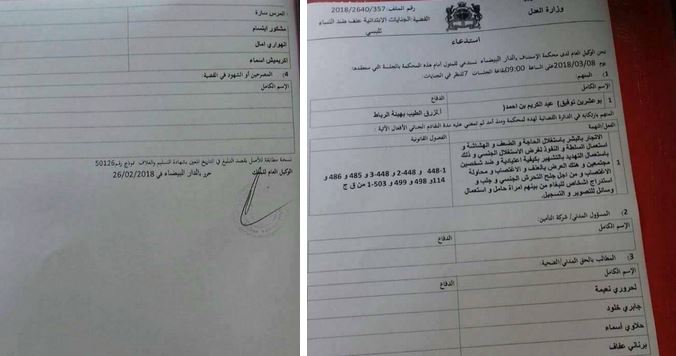 وزارة العدل
رقم الملف: 2018/2640/357
القضية: الجنايات الابتدائية عنف ضد النساء
تلبسي
استدعاء
إن الوكيل العام لدى محكمة الاستئناف بالدار البيضاء يستدعي للمثول أمام هذه المحكمة بالجلسة التي ستعقدها:
يوم 2018/03/08 على الساعة 09:00 بقاعة الجلسات 7 للنظر في الجنايات.
1: المتهم:
الإسم الكامل
الدفاع
1 بوعشرين توفيق( عبد الكريم بن احمد)
الأزرق الطيب بهيئة الرباط
الفعل/التهمة
الفصول القانونية
1 الاتجار بالبشر باستغلال الحاجة و الضعف و الهشاشة و
استعمال السلطة و النفوذ لغرض الاستغلال الجنسي و ذلك
باستعمال التهديد بالتشهير بكيفية اعتيادية و ضد شخصين
مجتمعين و هتك العرض بالعنف و الاغتصاب و محاولة
الاغتصاب و من اجل جنح التحرش الجنسي و جلب و
استدراج اشخاص للبغاء من بينهم امرأة حامل و استعمال
وسائل للتصوير و التسجيل.
448-1 و 448-2 و 448-3 و 485 و 486 و
114 و 498 و 499 و 503-1 من ق ج
2: المسؤول المدني/ شركة التأمين:
الإسم الكامل
الدفاع
3: المطالب بالحق المدني/الضحية:
الإسم الكامل
الدفاع
لحروري نعيمة
جابري خلود
حلاوي أسماء
برناني عفاف
المرس سارة
مشكور ابتسام
الهواري امال
اكريمش اسماء
4: المصرحين أو الشهود في القضية:
الإسم الكامل
نسخة مطابقة للأصل بقصد التبليغ في التاريخ المعين بشهادة التسليم والغلاف نموذج رقم 50126
حرر بالدار البيضاء في 26/02/2018
الوكيل العام للملك